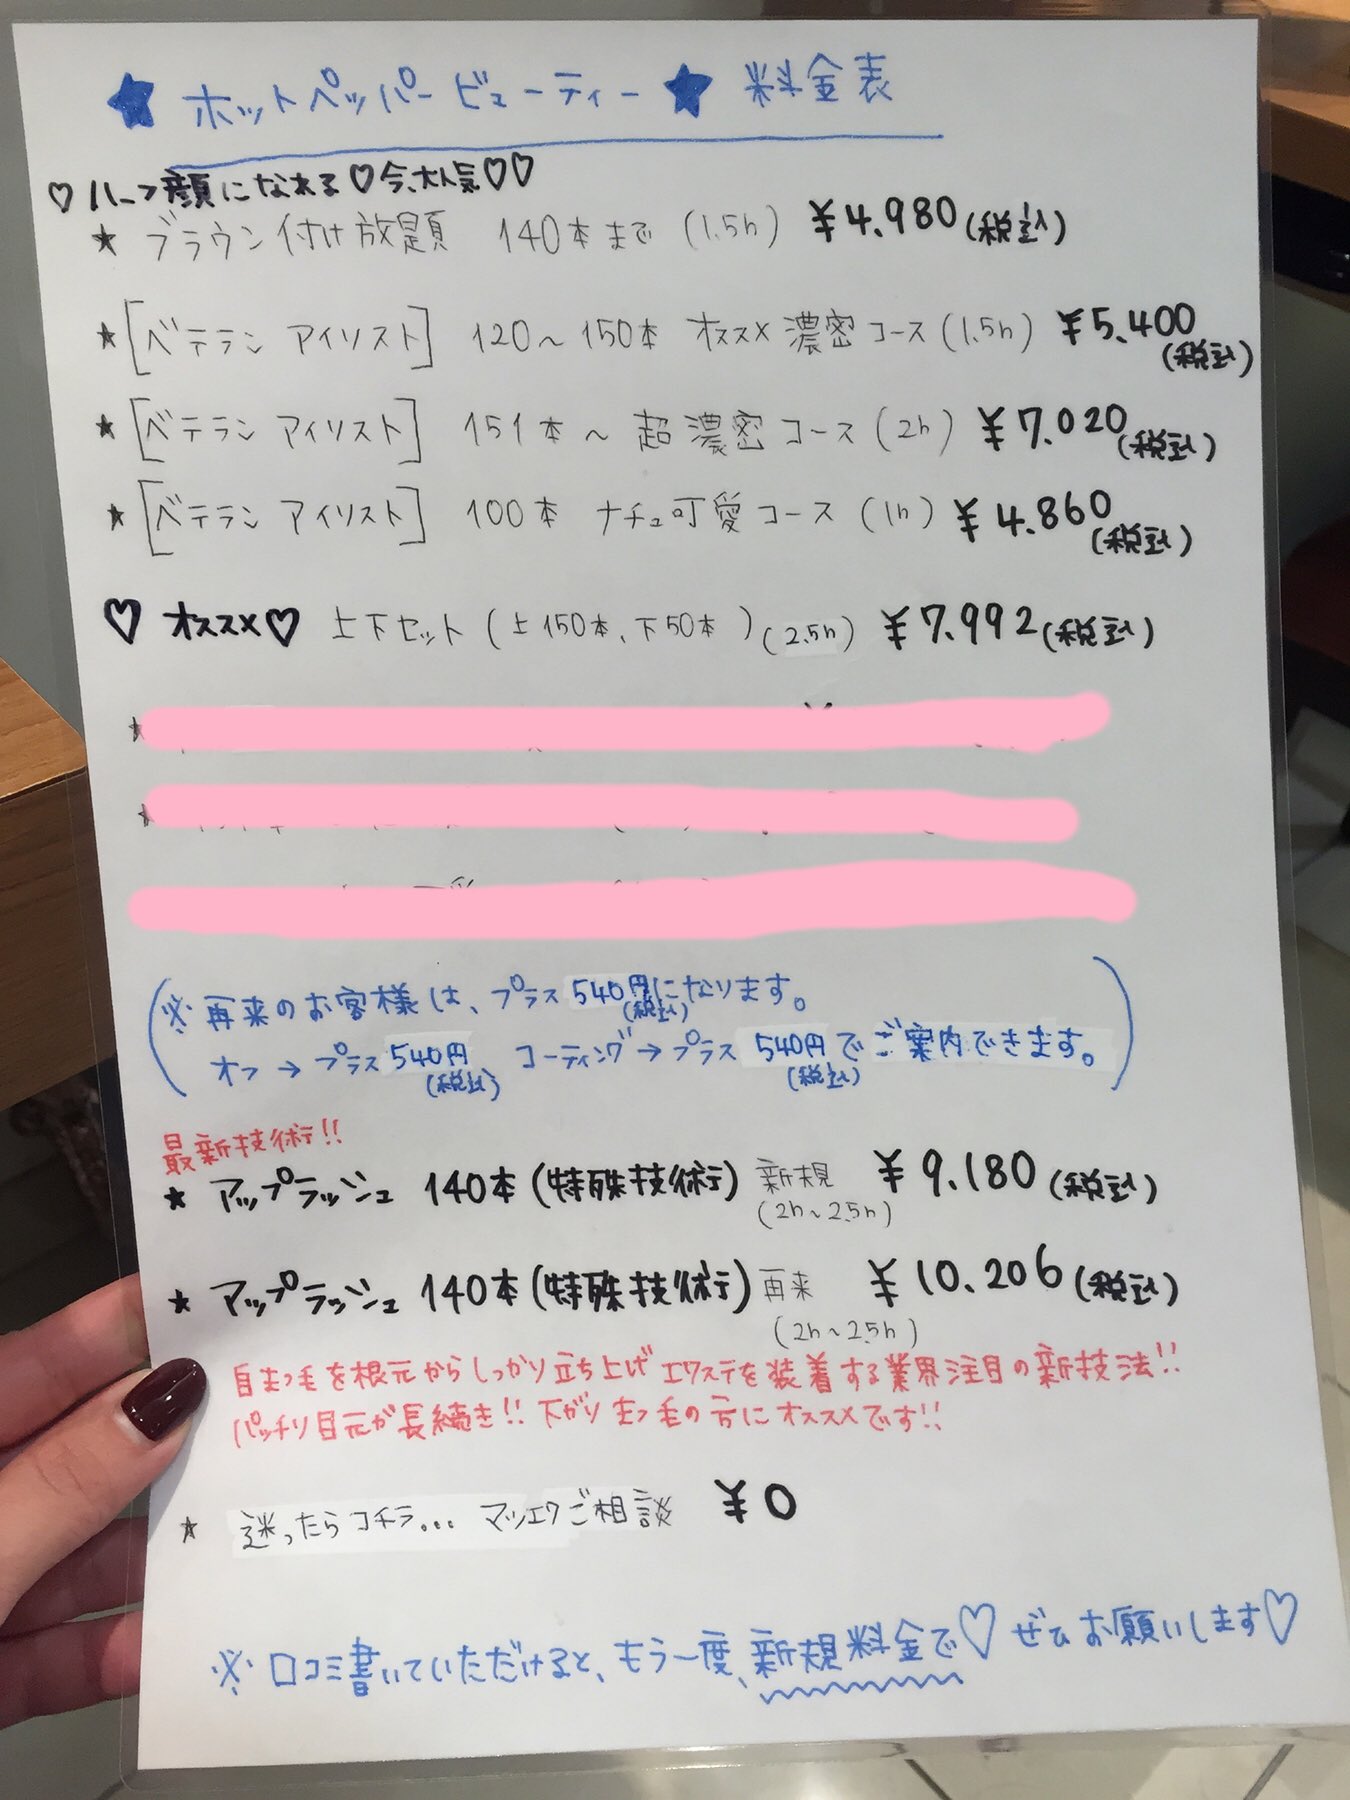 ★ ホットペッパービューティー ★ 料金表
♡ ハーフ顔になれる♡今、大人気♡♡
★ ブラウン付け放題 140本まで (1.5h) ¥4.980(税込)
★ [ベテラン アイリスト] 120～150本 オススメ濃密コース(1.5h) ¥5.400(税込)
★ [ベテラン アイリスト] 151本～ 超濃密コース(2h) ¥7.020(税込)
★ [ベテラン アイリスト] 100本 ナチュ可愛コース(1h) ¥4.860(税込)
♡ オススメ♡ 上下セット(上150本、下50本)(2.5h) ¥7.992(税込)
(※再来のお客様は、プラス540円(税込)になります。
オフ→プラス540円(税込) コーティング→プラス540円(税込)でご案内できます。)
最新技術!!
★ アップラッシュ 140本(特殊技術) 新規 (2h～2.5h) ¥9.180(税込)
★ アップラッシュ 140本(特殊技術) 再来 (2h～2.5h) ¥10.206(税込)
自まつ毛を根元からしっかり立ち上げエクステを装着する業界注目の新技法!!
パッチリ目元が長続き!! 下がりまつ毛の方にオススメです!!
★ 迷ったらコチラ... マツエクご相談 ¥0
※ 口コミ書いていただけると、もう一度、新規料金で♡ ぜひお願いします♡